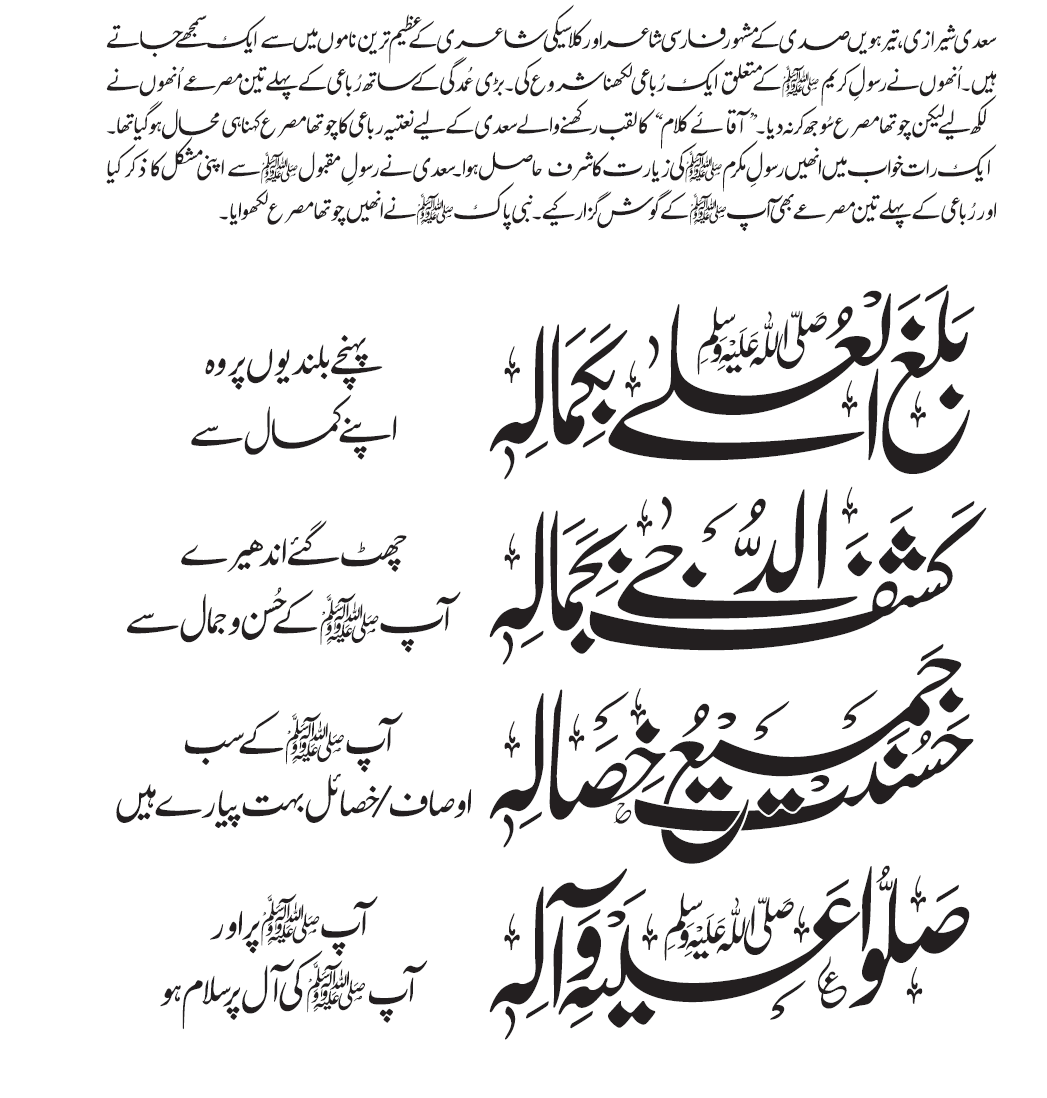 سعدی شیرازی، تیرھویں صدی کے مشہور فارسی شاعر اور کلاسیکی شاعری کے عظیم ترین ناموں میں سے ایک سمجھے جاتے
ہیں۔ اُنھوں نے رسولِ کریم ﷺ کے متعلق ایک رُباعی لکھنا شروع کی۔ بڑی عُمدگی کے ساتھ رُباعی کے پہلے تین مصرعے اُنھوں نے
لکھ لیے لیکن چوتھا مصرع سُوجھ کر نہ دیا۔ "آقائے کلام" کا لقب رکھنے والے سعدی کے لیے نعتیہ رباعی کا چوتھا مصرع کہنا ہی محال ہوگیا تھا۔
ایک رات خواب میں انھیں رسولِ مکرم ﷺ کی زیارت کا شرف حاصل ہوا۔ سعدی نے رسولِ مقبول ﷺ سے اپنی مشکل کا ذکر کیا
اور رُباعی کے پہلے تین مصرعے بھی آپ ﷺ کے گوش گزار کیے۔ نبی پاک ﷺ نے انھیں چوتھا مصرع لکھوایا۔
بَلَغَ الْعُلٰے صَلَّی اللّٰہُ عَلَیْہِ وَسَلَّم بِکَمَالِہٖ
پہنچے بلندیوں پر وہ
اپنے کمال سے
کَشَفَ الدُّجٰے بِجَمَالِہٖ
چھٹ گئے اندھیرے
آپ ﷺ کے حُسن و جمال سے
حَسُنَتْ جَمِیْعُ خِصَالِہٖ
آپ ﷺ کے سب
اوصاف/خصائل بہت پیارے ہیں
صَلُّوْا عَلَیْہِ صَلَّی اللّٰہُ عَلَیْہِ وَسَلَّم وَآلِہٖ
آپ ﷺ پر اور
آپ ﷺ کی آل پر سلام ہو